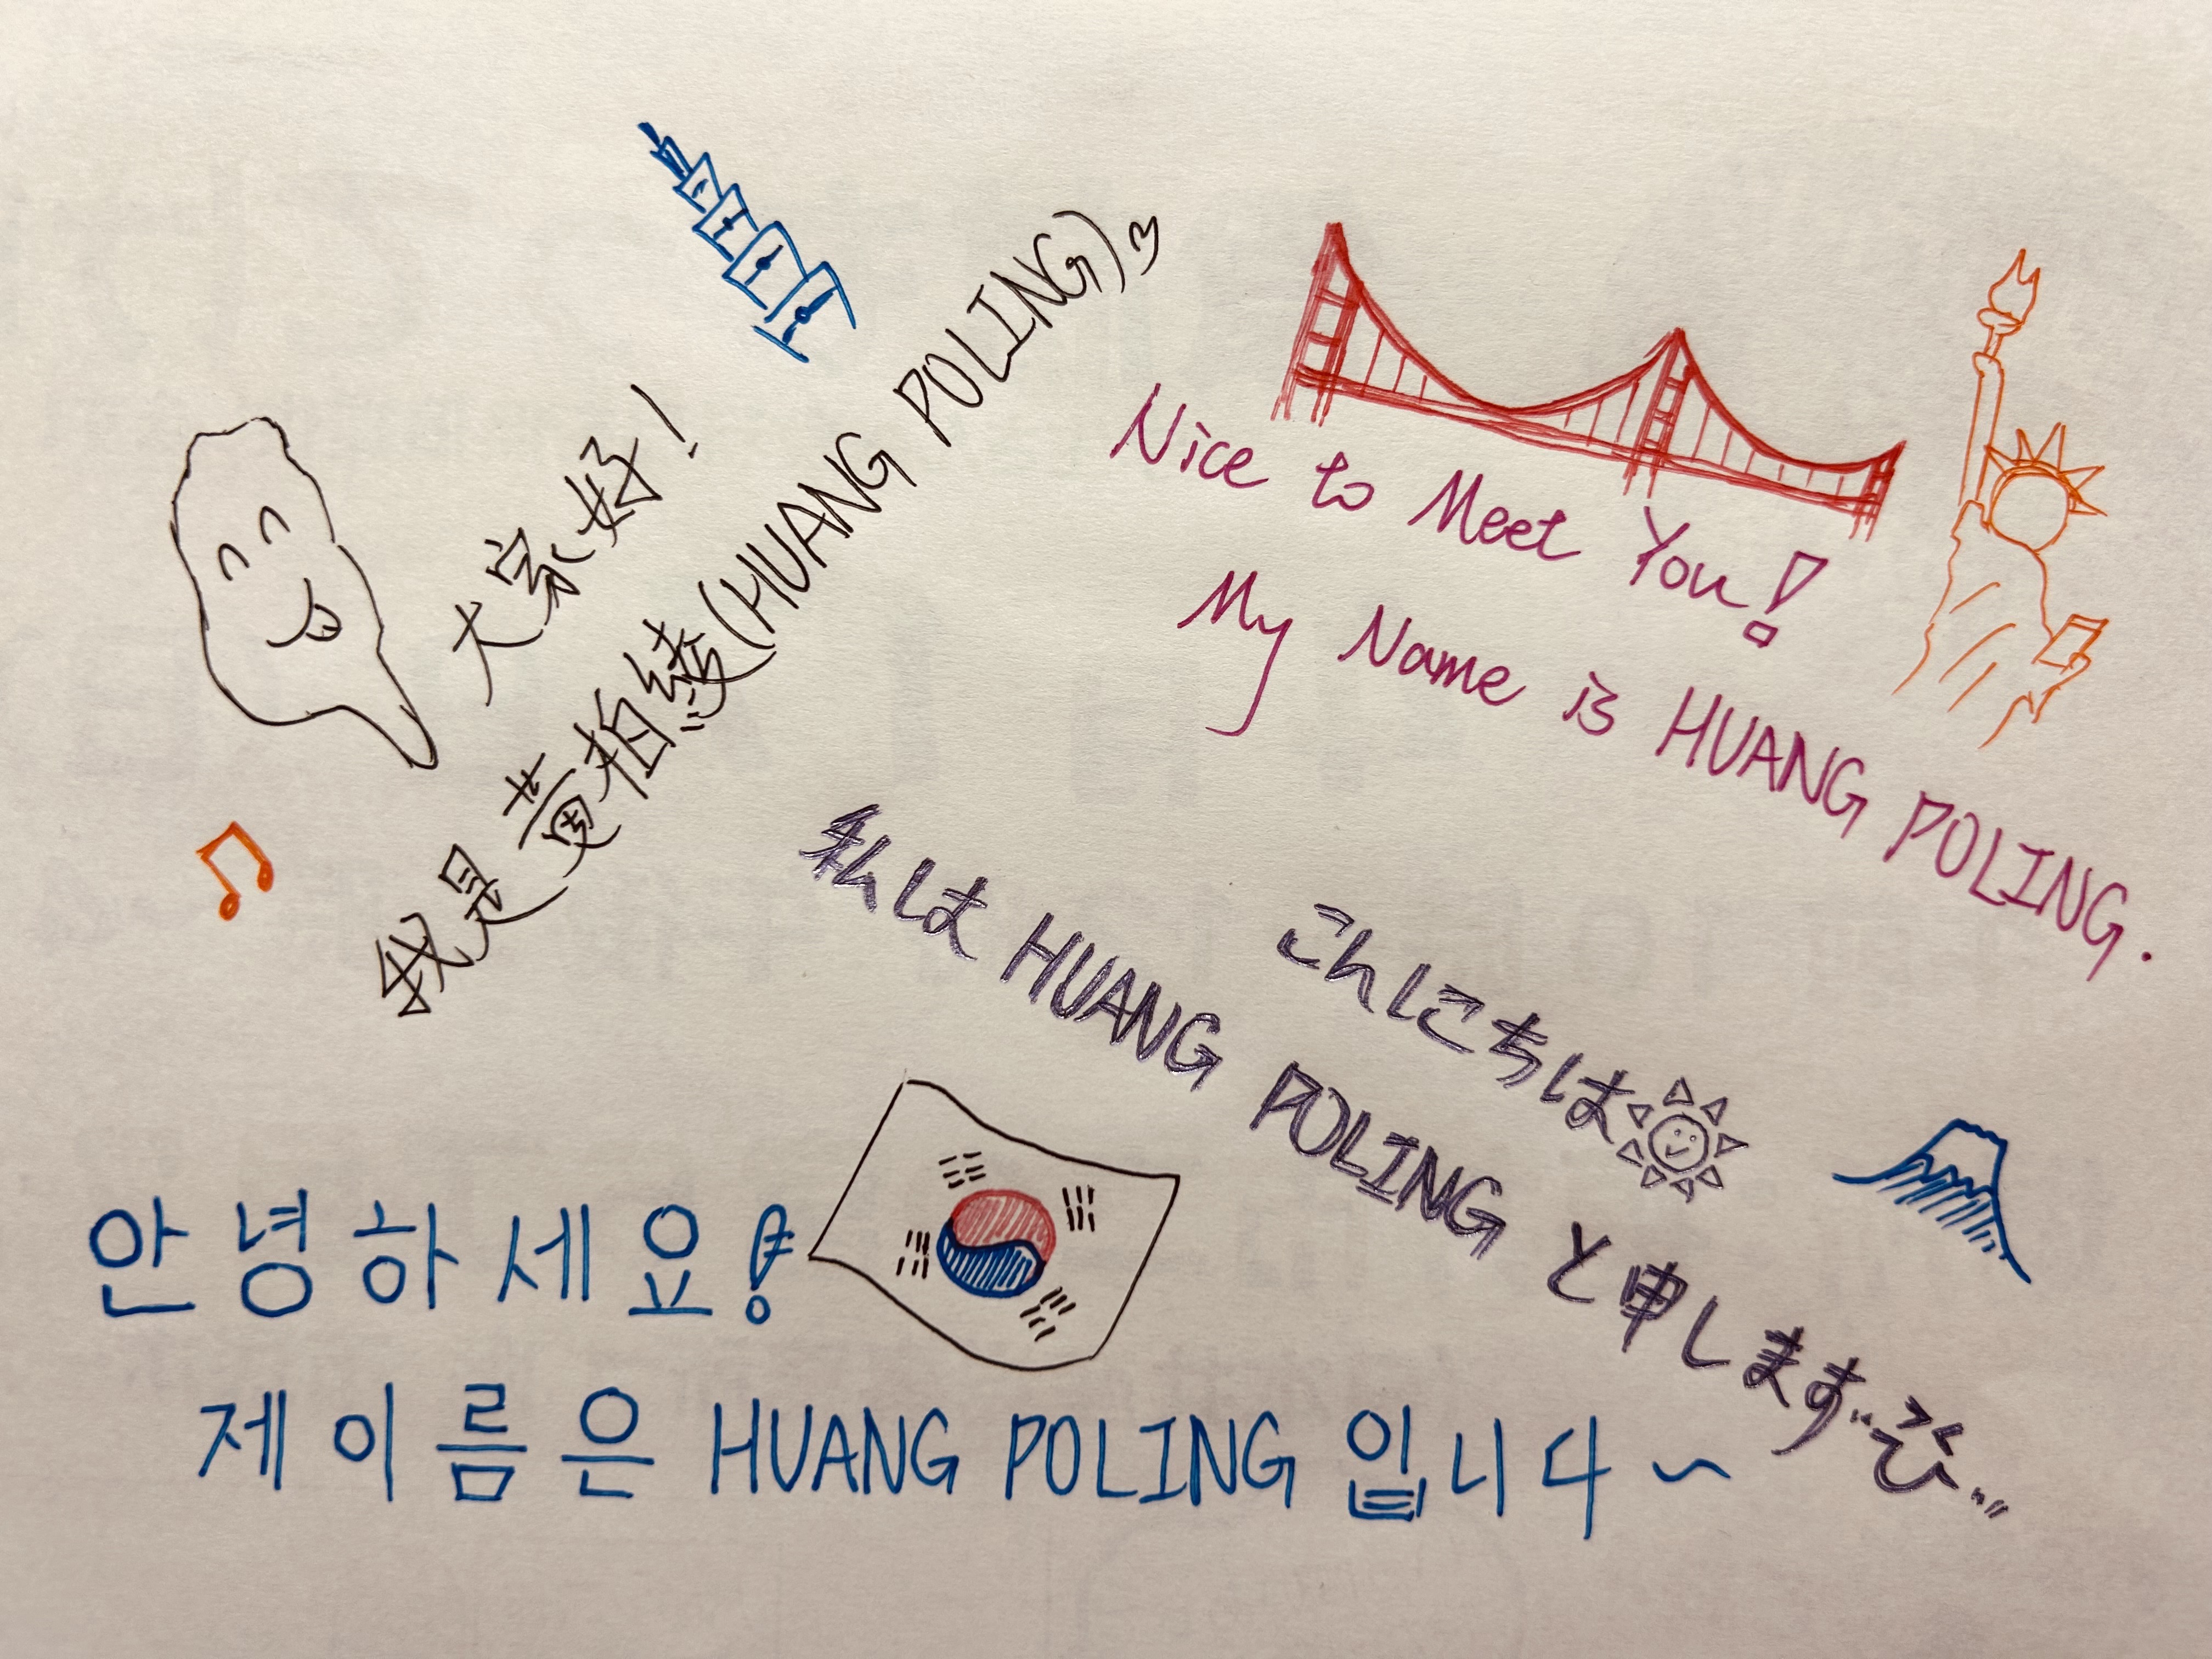 大家好!
我是黃柏綾(HUANG POLING)
Nice to Meet You!
My Name is HUANG POLING.
こんにちは
私は HUANG POLING と申します
안녕하세요!
제 이름은 HUANG POLING 입니다~